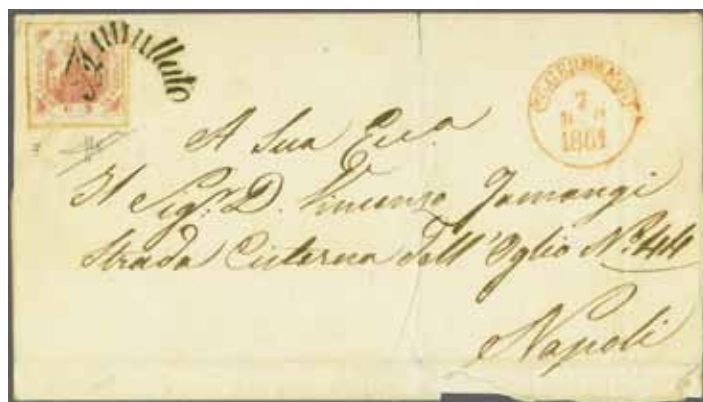 Annullato
7
1861
A Sua Ecc.a
Il Sig.r D. Vincenzo
Strada Cisterna dell'Oglio N.º 44
Napoli